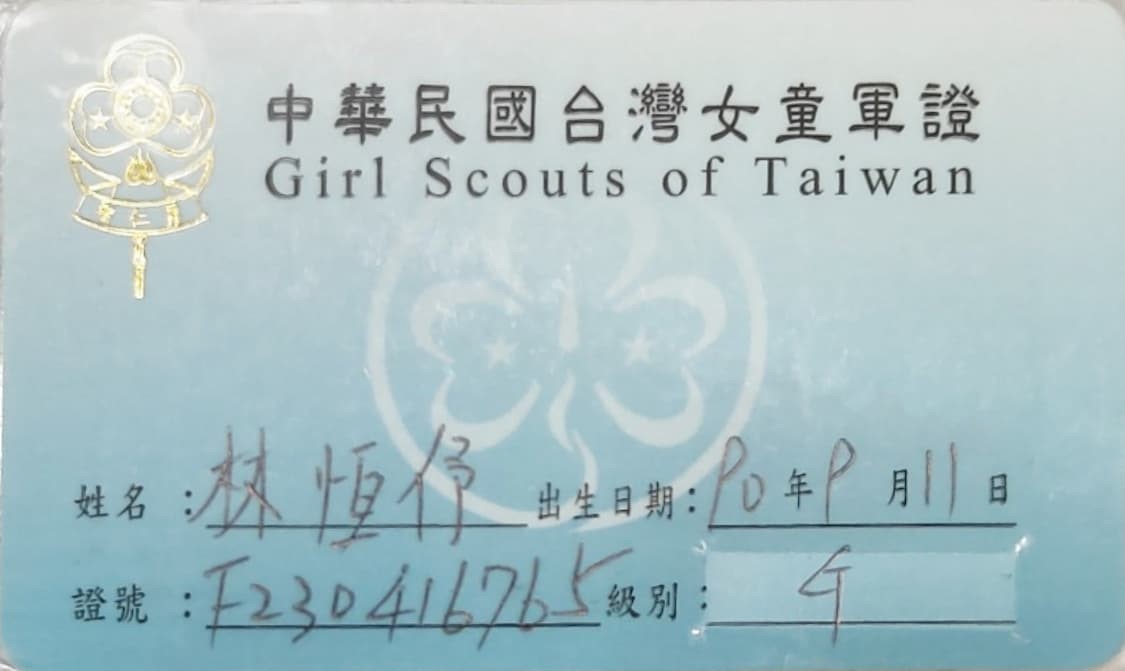 中華民國台灣女童軍證
Girl Scouts of Taiwan
姓名：林恒伃 出生日期：90年9月11日
證號：F230416765 級別：G